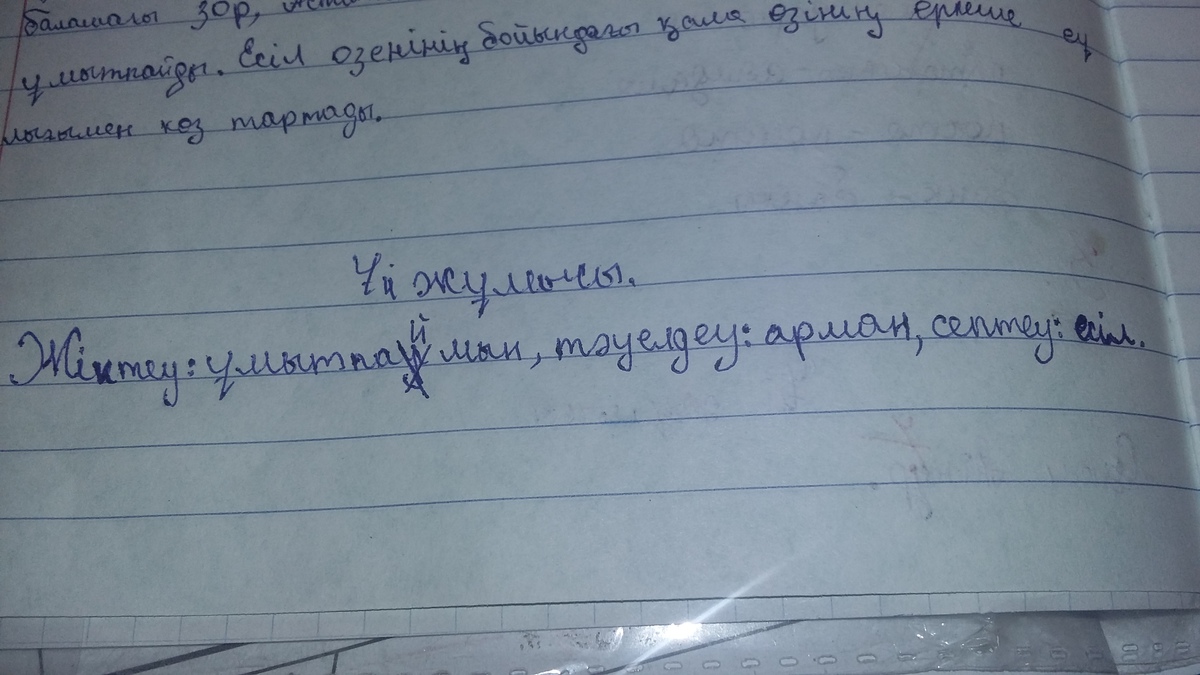 балашағы зор,
ұмытпайды. Есіл өзенінің бойындағы қала өзінің ерекше
лығымен көз тартады.
Үй жұмысы.
Жіктеу: ұмытпаймын, тәуелдеу: арман, септеу: есіл.